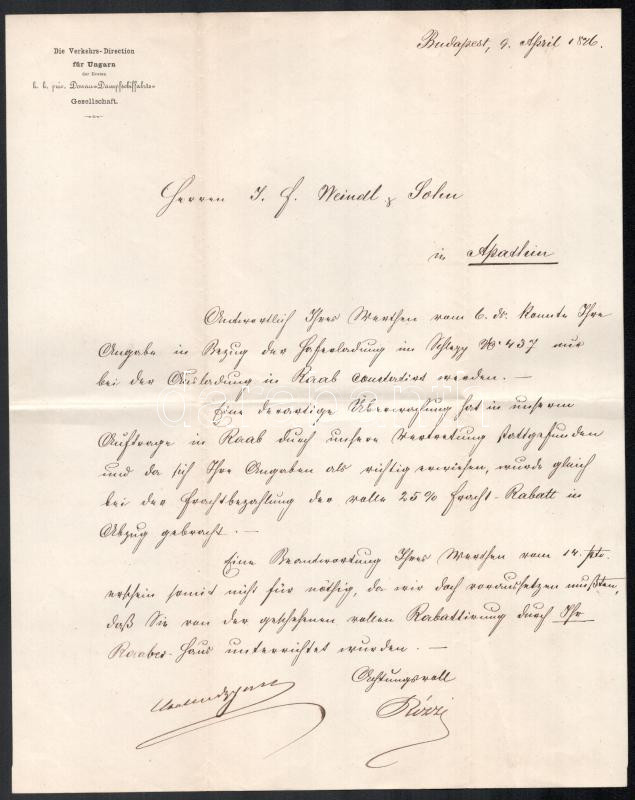 Die Verkehrs-Direction
für Ungarn
der Ersten
k. k. priv. Donau-Dampfschiffahrts-
Gesellschaft.
Budapest, 9. April 1876.
Herren J. F. Weindl & Sohn
in Apathin
Antwortlich Ihres Werthen vom 6. ds. konnte Ihre
Angabe in Bezug der Haferladung im Schlepp No 437 nur
bei der Ausladung in Raab constatirt werden. —
Eine derartige Überwachung hat in unserm
Auftrage in Raab durch unsere Vertretung stattgefunden
und da sich Ihre Angaben als richtig erwiesen, wurde gleich
bei der Frachtbezahlung der volle 25% Fracht-Rabatt in
Abzug gebracht. —
Eine Beantwortung Ihres Werthen vom 14. pto.
erschien somit nicht für nöthig, da wir doch voraussetzen mußten,
daß Sie von der geschehenen vollen Rabattirung durch Ihr
Raaber-Haus unterrichtet wurden. —
Achtungsvoll